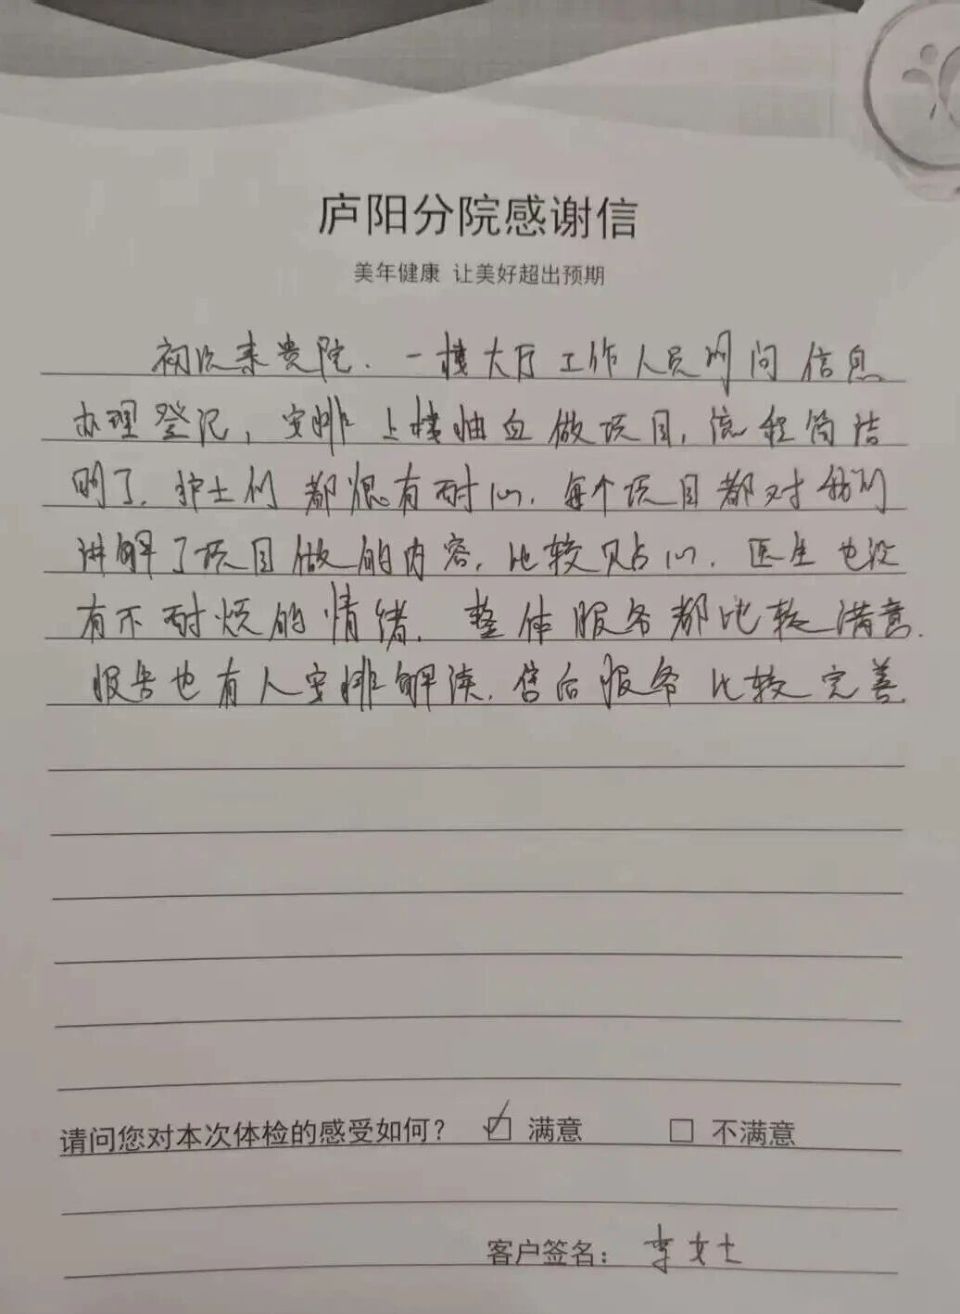 庐阳分院感谢信
美年健康 让美好超出预期
初次来贵院.一楼大厅工作人员询问信息
办理登记,安排上楼抽血做项目,流程简洁
明了.护士们都很有耐心.每个项目都对我们
讲解了项目做的内容,比较贴心.医生也没
有不耐烦的情绪.整体服务都比较满意.
报告也有人安排解读.售后服务比较完善.
请问您对本次体检的感受如何? ☑ 满意 □ 不满意
客户签名: 李女士